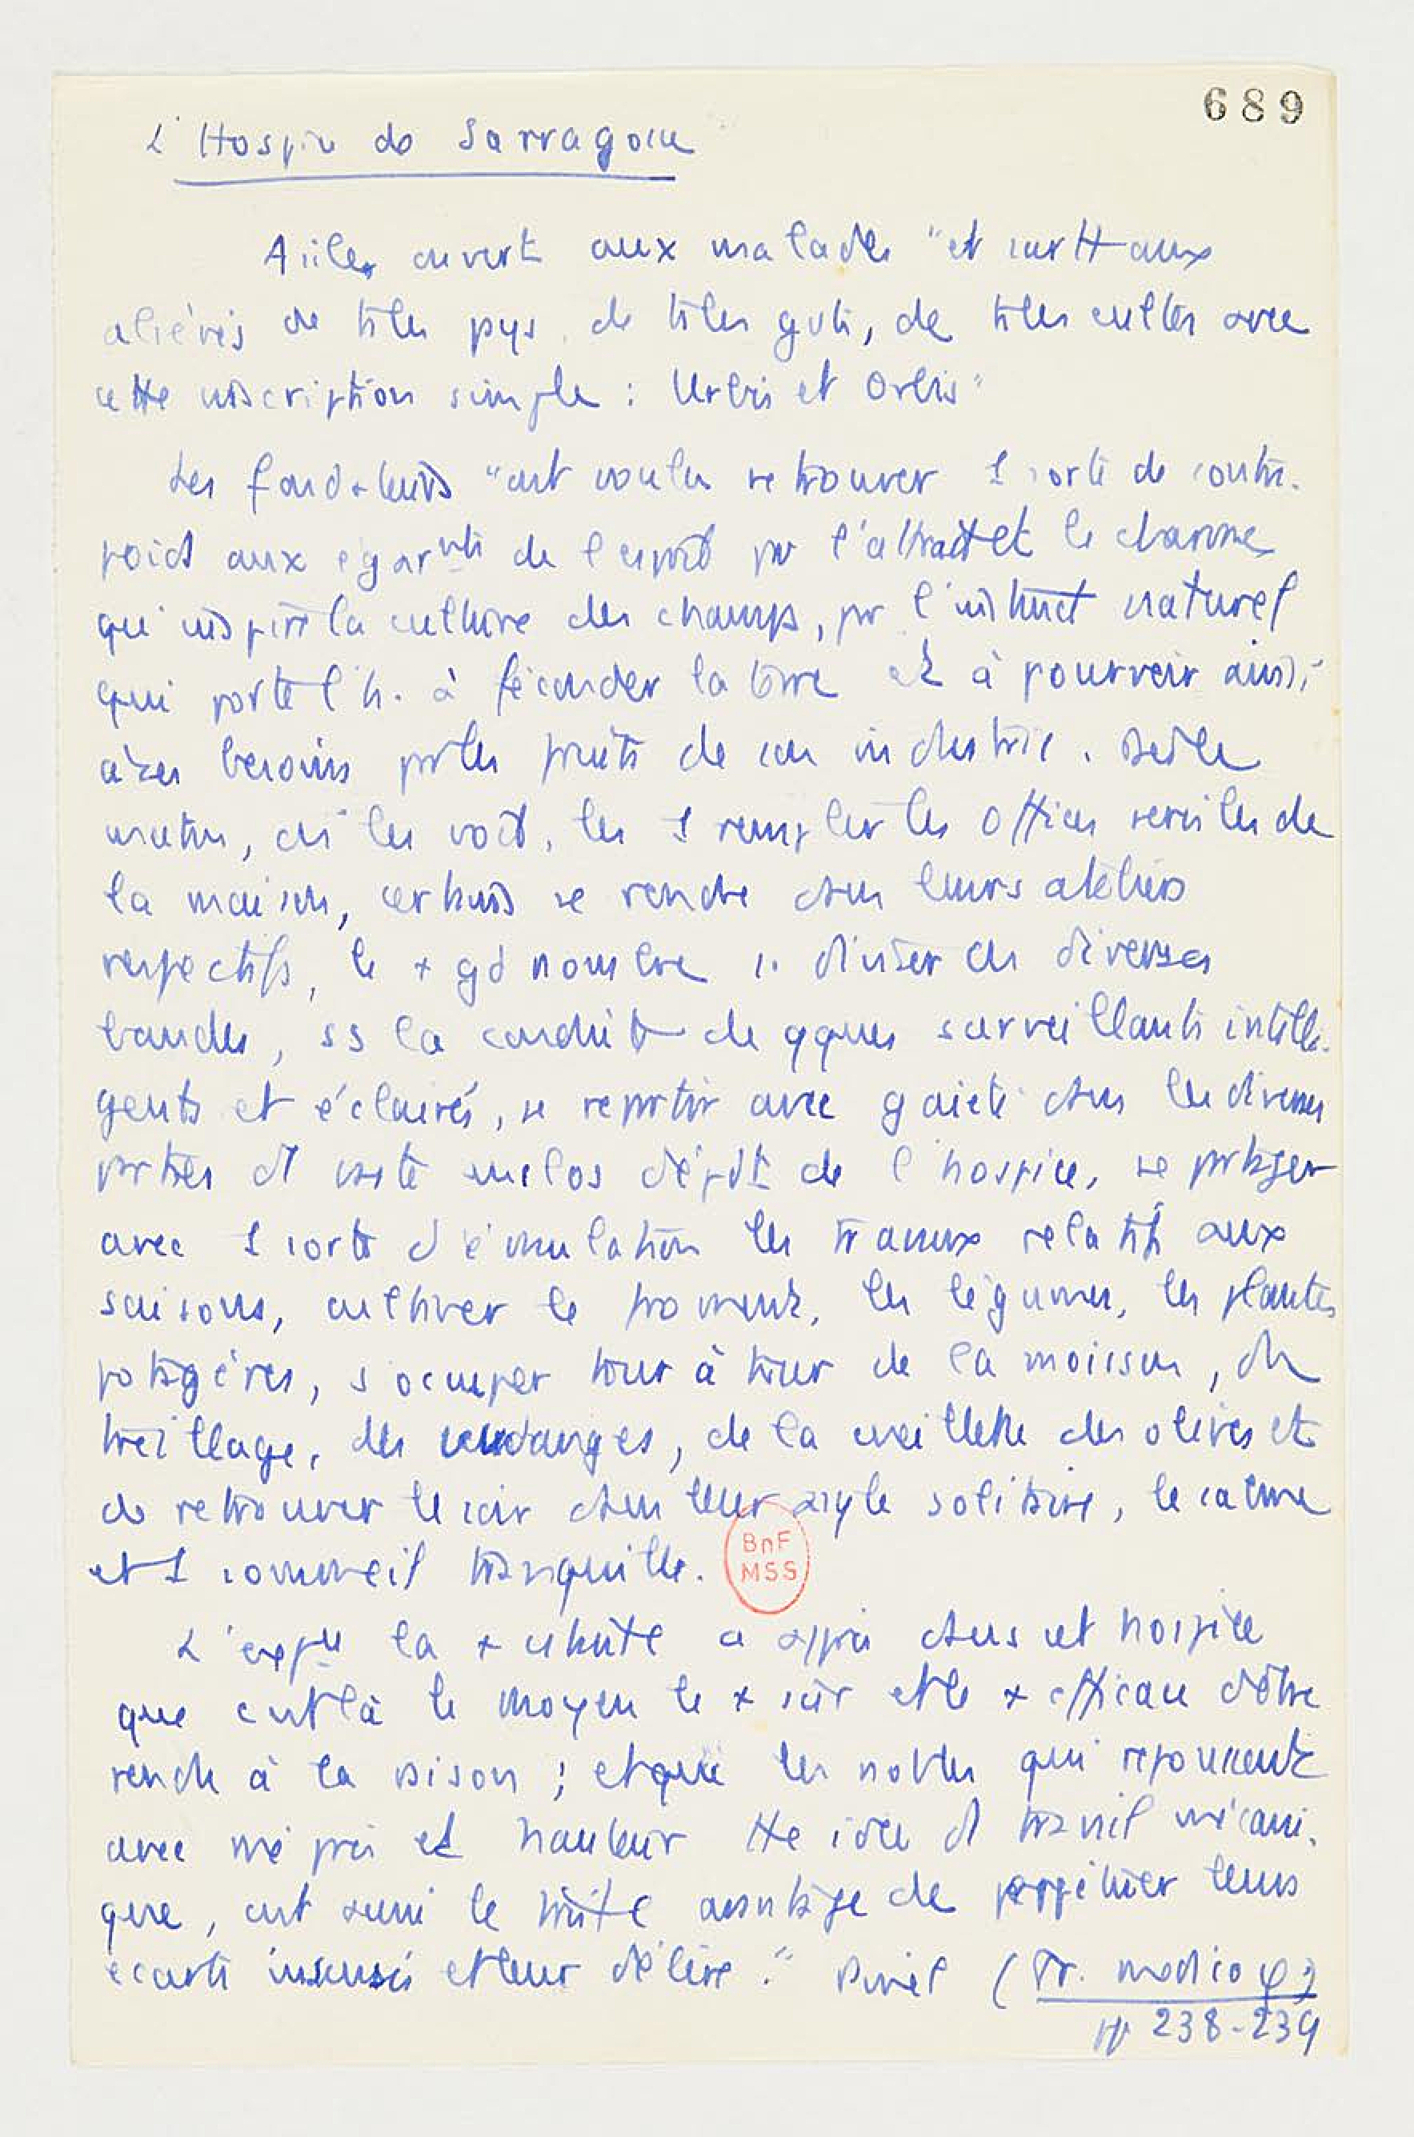 689
L'Hospice de Sarragosse
Asiles ouvert aux malades "et surtt aux
aliénés de ts les pys, de ts les gvts, de ts les cultes avec
cette inscription simple : Urbis et Orbis"
Les fondateurs "ont voulu retrouver 1 sorte de contre-
poids aux égarmts de l'esprit pr l'attrait et le charme
qui inspire la culture des champs, pr l'instinct naturel
qui porte l'h. à féconder la terre et à pourvoir ainsi
à ses besoins pr les fruits de son industrie. Dès le
matin, on les voit, les 1 remplir les offices serviles de
la maison, certains se rendre dans leurs ateliers
respectifs, le + gd nombre s. diviser en diverses
bandes, ss la conduite de qques surveillants intelli-
gents et éclairés, se repartir avec gaieté dans les diverses
parties d'1 vaste enclos dépdt de l'hospice, se partager
avec 1 sorte d'émulation les travaux relatifs aux
saisons, cultiver le froment, les légumes, les plantes
potagères, s'occuper tour à tour de la moisson, du
treillage, des vendanges, de la cueillette des olives et
de retrouver le soir dans leur asyle solitaire, le calme
et 1 sommeil tranquille.
BnF
MSS
L'expce la + cstante a appris dans cet hospice
que c'est là le moyen le + sûr et le + efficace d'être
rendu à la raison ; et que les nobles qui repoussent
avec mépris et hauteur tte idée d'1 travail mécani-
que, ont aussi le triste avantage de perpétuer leurs
écarts insensés et leur délire." Pinel (Tr. medico φ)
pp 238-239